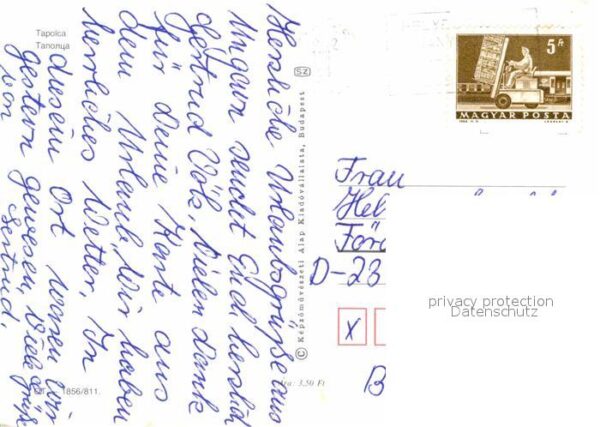 Tapolca
Таполца
Herzliche Urlaubsgrüße aus
Ungarn sendet Euch herzlich
Gertrud Völk, Vielen Dank
für Deine Karte aus
dem Urlaub, Wir haben
herrliches Wetter, In
diesem Ort waren wir
gestern gewesen, Viele Grüße
von Gertrud,
1856/811.
SZ
© Képzőművészeti Alap Kiadóvállalata, Budapest
Ára: 3,50 Ft
5 Ft
MAGYAR POSTA
Frau
Hel
För
D-23
X
B
privacy protection
Datenschutz